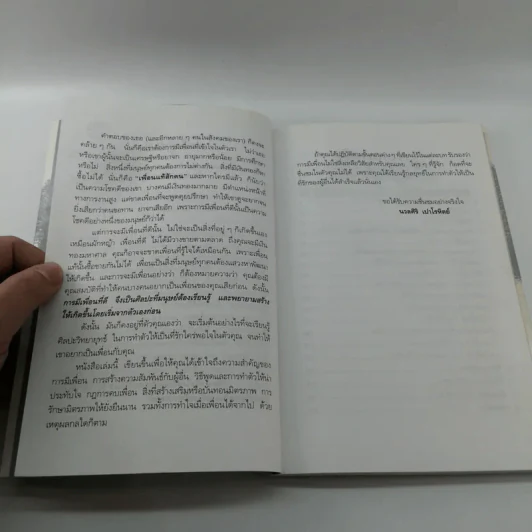 คำตอบของเธอ (และอีกหลาย ๆ คนในสังคมของเรา) ก็คง
คล้าย ๆ กัน นั่นก็คือเราต้องการมีเพื่อนที่เข้าใจในตัวเรา ไม่ว่าเธอ
หรือเขาผู้นั้นจะเป็นเศรษฐีหรือยาจก อายุมากหรือน้อย มีการศึกษา
หรือไม่ สิ่งหนึ่งที่มนุษย์ทุกคนต้องการไม่ต่างกัน สิ่งที่มีเงินทองก็
ซื้อไม่ได้ นั่นก็คือ "เพื่อนแท้สักคน" และหากใครมีแล้ว ก็นับว่า
เป็นความโชคดีของเขา บางคนมีเงินทองมากมาย มีตำแหน่งหน้าที่
ทางการงานสูง แต่ขาดเพื่อนที่จะพูดคุยปรึกษา ทำให้เขาดูจะยากจน
ยิ่งเสียกว่าคนขอทาน ยาจกเสียอีก เพราะการมีเพื่อนที่ดีนั้นเป็นความ
โชคดีอย่างหนึ่งของมนุษย์ก็ว่าได้
แต่การจะมีเพื่อนที่ดีนั้น ไม่ใช่จะเป็นสิ่งที่อยู่ ๆ ก็เกิดขึ้นเอง
เหมือนผักหญ้า เพื่อนที่ดี ไม่ได้มีวางขายตามตลาด ถึงคุณจะมีเงิน
ทองมหาศาล คุณก็อาจจะขาดเพื่อนที่รู้ใจได้เหมือนกัน เพราะเพื่อน
แท้นั้นซื้อขายกันไม่ได้ เพื่อนเป็นสิ่งที่มนุษย์ทุกคนต้องแสวงหาพัฒนา
ให้เกิดขึ้น และการจะมีเพื่อนอย่างว่า ก็ต้องหมายความว่า คุณต้องมี
คุณสมบัติที่ทำให้คนบางคนอยากเป็นเพื่อนของคุณเสียก่อน ดังนั้น
การมีเพื่อนที่ดี จึงเป็นศิลปะที่มนุษย์ต้องเรียนรู้ และพยายามสร้าง
ให้เกิดขึ้นโดยเริ่มจากตัวเองก่อน
ดังนั้น มันก็คงอยู่ที่ตัวคุณเองว่า จะเริ่มต้นอย่างไรที่จะเรียนรู้
ศิลปะวิทยายุทธ์ ในการทำตัวให้เป็นที่รักใคร่พอใจในตัวคุณ จนทำให้
เขาอยากเป็นเพื่อนกับคุณ
หนังสือเล่มนี้ เขียนขึ้นเพื่อให้คุณได้เข้าใจถึงความสำคัญของ
การมีเพื่อน การสร้างความสัมพันธ์กับผู้อื่น วิธีพูดและการทำตัวให้น่า
ประทับใจ กฎการคบเพื่อน สิ่งที่สร้างเสริมหรือบั่นทอนมิตรภาพ การ
รักษามิตรภาพให้ยั่งยืนนาน รวมทั้งการทำใจเมื่อเพื่อนได้จากไป ด้วย
เหตุผลกลใดก็ตาม
ถ้าคุณได้ปฏิบัติตามขั้นตอนต่าง ๆ ที่เขียนไว้ในแต่ละบท รับรองว่า
การมีเพื่อนไม่ใช่สิ่งเหลือวิสัยสำหรับคุณเลย ใคร ๆ ที่รู้จัก ก็อดที่จะ
ชื่นชมในตัวคุณไม่ได้ เพราะคุณได้เรียนรู้กลยุทธ์ในการทำตัวให้เป็น
ที่รักของผู้อื่นได้สำเร็จแล้วนั่นเอง
ขอได้รับความชื่นชมอย่างจริงใจ
นวลศิริ เปาโรหิตย์